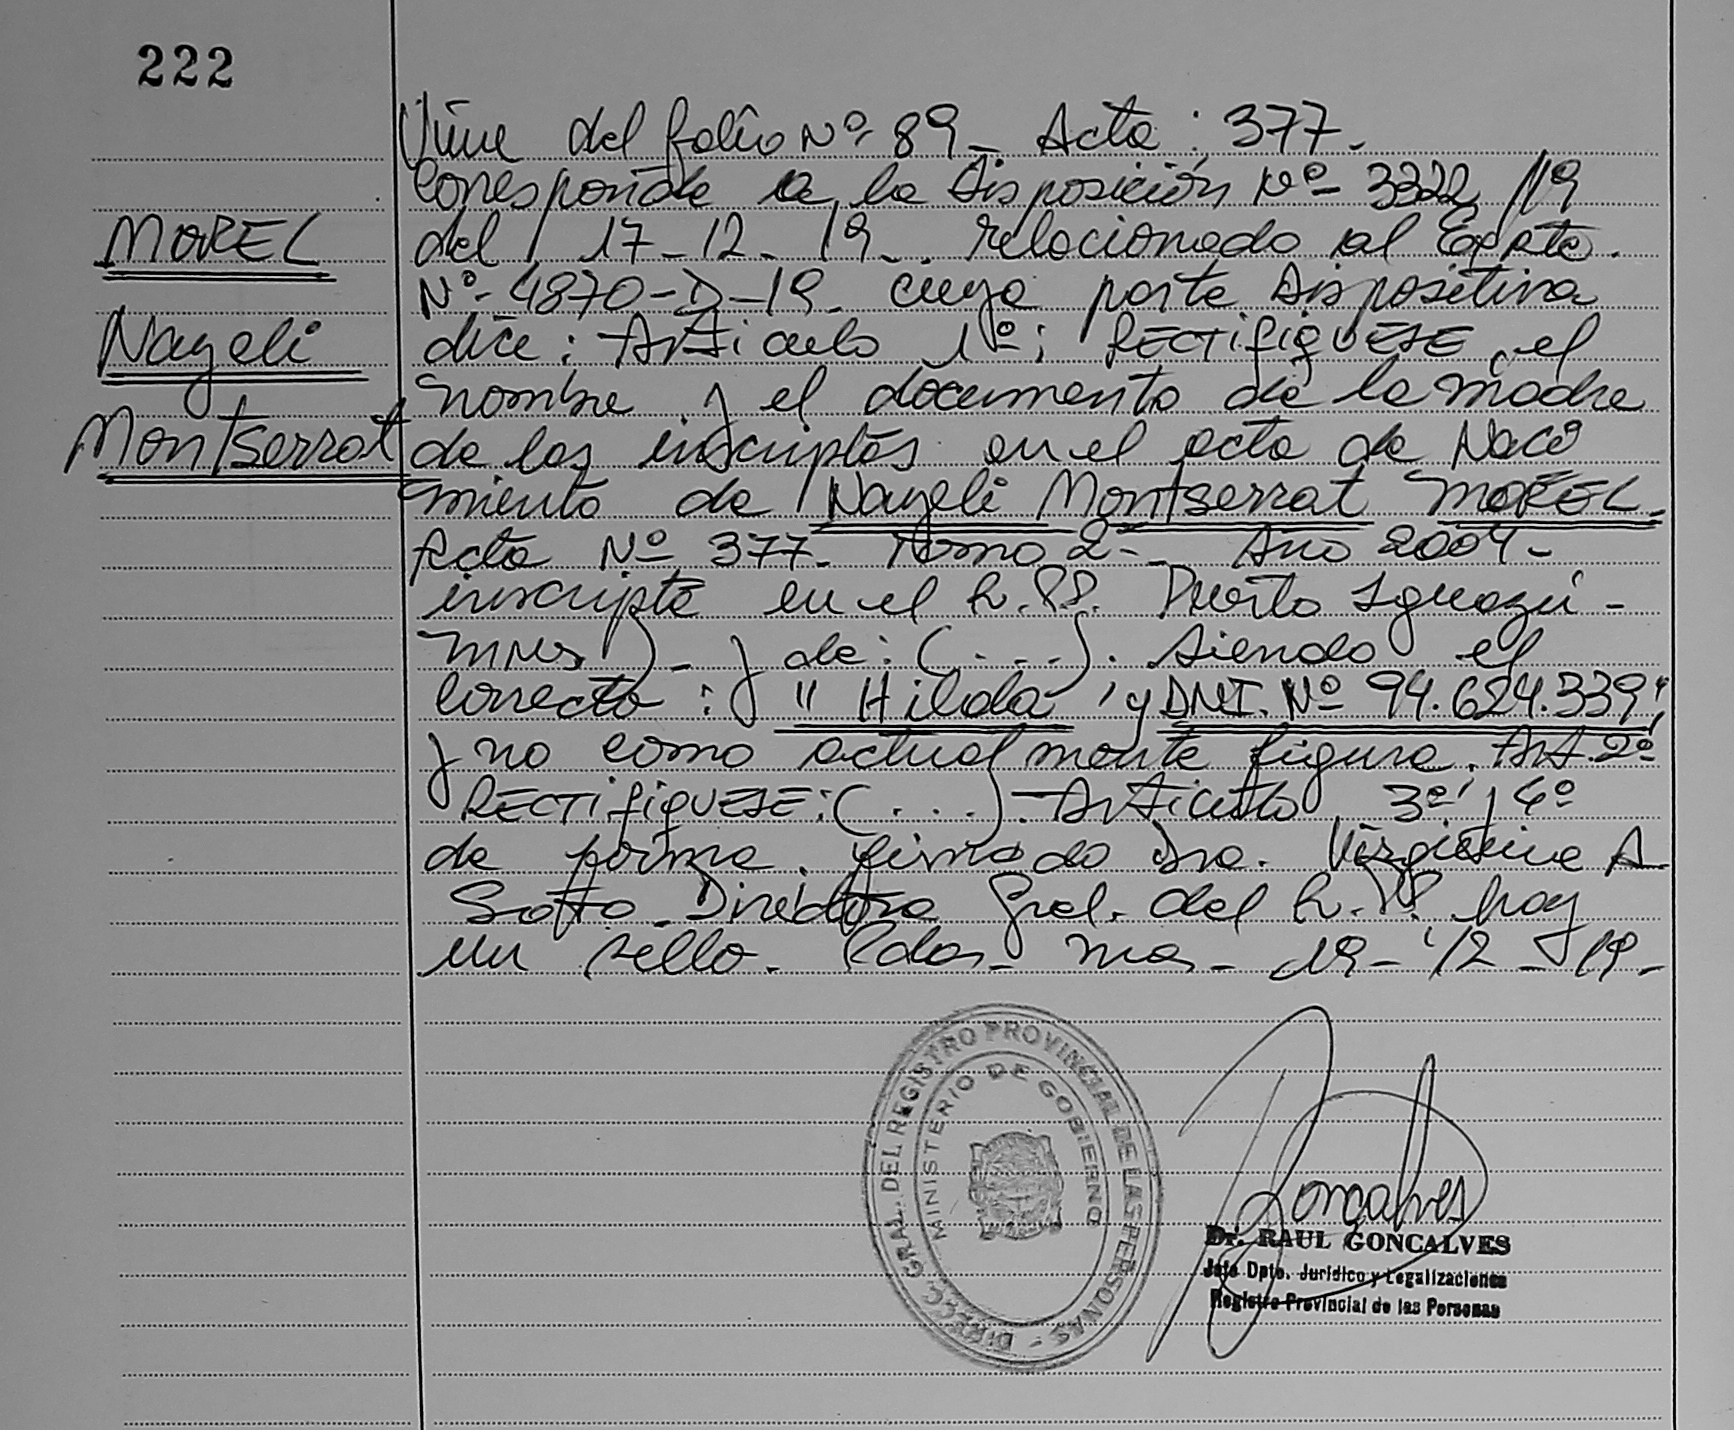 222
MOREL
Nayeli
Montserrat
Viene del folio Nº 89 - Acta : 377.
Corresponde a la Disposición Nº 3322/19
del 17-12-19. relacionado al Expte.
Nº 4870-D-19. cuya parte dispositiva
dice: Artículo 1º: RECTIFIQUESE, el
nombre y el documento de la madre
de los inscriptos en el acta de Naci
miento de Nayeli Montserrat MOREL.
Acta Nº 377. Tomo 2 - Año 2004 -
inscripta en el R.PP. Puerto Iguazú -
MNES) - y de: (...). Siendo el
correcto: "Hilda" y DNI. Nº 94.624.339"
y no como actualmente figura. Art. 2º
RECTIFIQUESE: (...). - Artículo 3º y 4º
de forma. firmado Dra. A.
Sotto Directora Gral. del R.PP. hay
un sello. Pdas - Mns - 19-12-19.-
DIRECC. GRAL. DEL REGISTRO PROVINCIAL DE LAS PERSONAS -
MINISTERIO DE GOBIERNO
Goncalves
Dr. RAUL GONCALVES
Jefe Dpto. Jurídico y Legalizaciones
Registro Provincial de las Personas